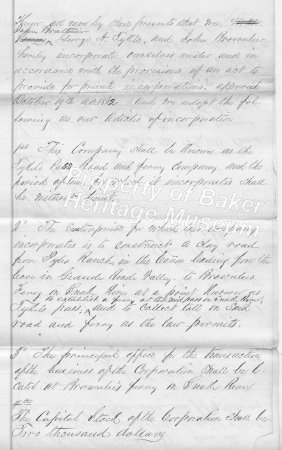 Know all men by these presents that we,
George A. Pyles, and John Brownlee
hereby incorporate ourselves under and in
accordance with the provisions of an act to
provide for private incorporations, approved
October 14th and we adopt the fol-
lowing as our Articles of incorporation
1st This Company shall be known as the
Road and ferry Company, and the
period of time for which it incorporates shall
be without limit.
2d The enterprise for which this Co
incorporates is to construct a clay road
from Pyles Ranch, in the Canon leading from the
Cove in Grand Ronde Valley, to Brownlees
Ferry on Snake River at a point known as
to establish a ferry at the said pass on Snake River
pass, and to Collect toll on said
road and ferry as the law permits.
3d The principal office for the transaction
of the business of the Corporation shall be lo
cated at Brownlee's ferry on Snake River
4th
The Capital Stock of the Corporation shall be
Two thousand dollars
Property of Baker
Heritage Museum